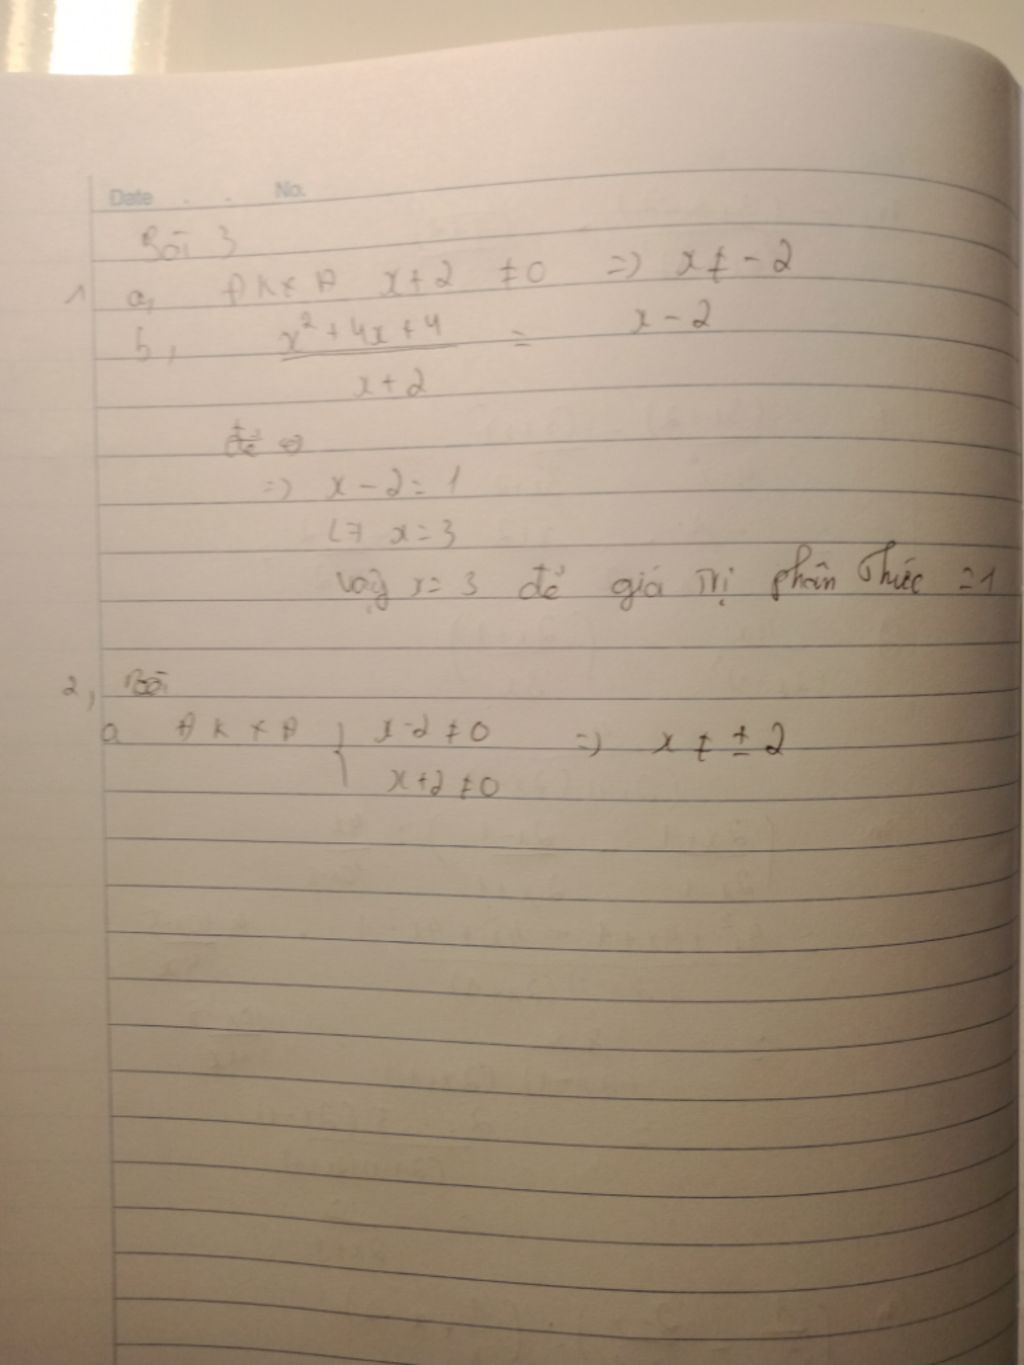 Date . . No.
Bài 3
1 a, ĐKXĐ x+2 ≠0 => x≠-2
b, x²+4x+4 = x-2
x+2
=> x-2=1
<=> x=3
Vậy x=3 để giá trị phân thức =1
2, Bài
a ĐKXĐ { x-2≠0 => x≠±2
x+2≠0